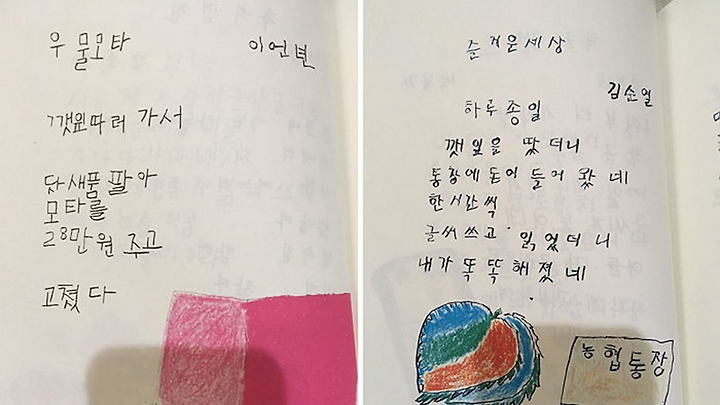 우물모타 이언년
깻잎따러 가서
닷새품 팔아
모타를
28만원 주고
고쳤다
즌거운세상
김순일
하루종일
깻잎을 땄더니
통황에 돈이 들어 왔네
한시간씩
글씨쓰고 읽었더니
내가 똑똑해졌네
농협통장